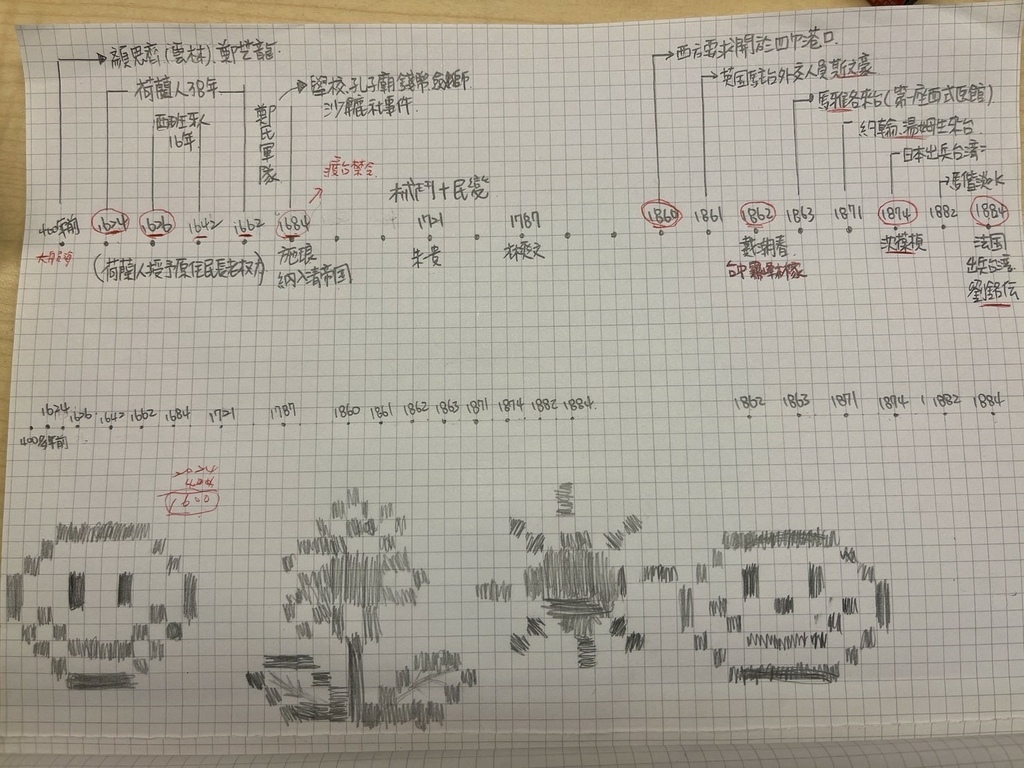 顏思齊(雲林)、鄭芝龍
荷蘭人38年
西班牙人
16年
鄭氏軍隊
學校、孔子廟
沙轆社事件
渡台禁令
+民變
西方要求開放四個港口
英国駐台外交人員
馬雅各來台(第一座西式医館)
約翰.湯姆生來台
日本出兵台湾
馬偕淡水
400年前
1624
1626
1642
1662
1684
1721
1787
1860
1861
1862
1863
1871
1874
1882
1884
(荷蘭人授予原住民長老权力)
施琅
納入清帝国
朱一貴
林爽文
戴潮春
沈葆楨
法国
出兵台湾
劉銘伝
1624
1626
1642
1662
1684
1721
1787
1860
1861
1862
1863
1871
1874
1882
1884
1862
1863
1871
1874
1882
1884
400多年前
2024
400
1600